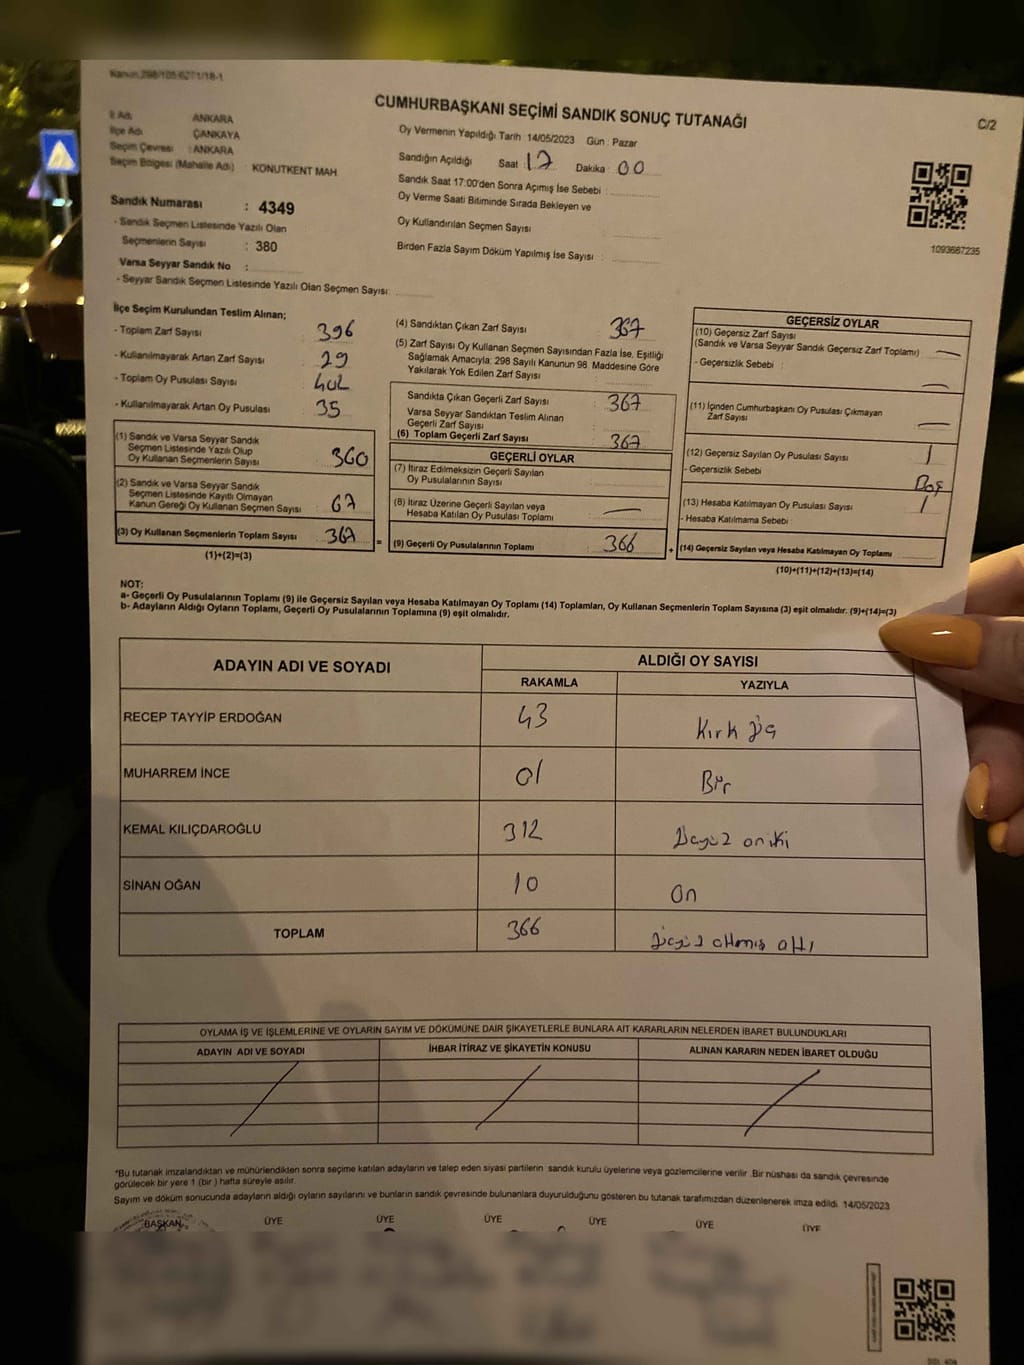 Kanun:298/105/6271/18-1
CUMHURBAŞKANI SEÇİMİ SANDIK SONUÇ TUTANAĞI
C/2
İl Adı ANKARA
İlçe Adı ÇANKAYA
Seçim Çevresi : ANKARA
Seçim Bölgesi (Mahalle Adı) : KONUTKENT MAH
Sandık Numarası : 4349
- Sandık Seçmen Listesinde Yazılı Olan
Seçmenlerin Sayısı : 380
Varsa Seyyar Sandık No :
- Seyyar Sandık Seçmen Listesinde Yazılı Olan Seçmen Sayısı:
Oy Vermenin Yapıldığı Tarih 14/05/2023 Gün : Pazar
Sandığın Açıldığı Saat 17 Dakika : 00
Sandık Saat 17:00'den Sonra Açımış İse Sebebi :
Oy Verme Saati Bitiminde Sırada Bekleyen ve
Oy Kullandırılan Seçmen Sayısı :
Birden Fazla Sayım Döküm Yapılmış İse Sayısı :
1093687235
İlçe Seçim Kurulundan Teslim Alınan;
- Toplam Zarf Sayısı : 396
- Kullanılmayarak Artan Zarf Sayısı : 29
- Toplam Oy Pusulası Sayısı : 402
- Kullanılmayarak Artan Oy Pusulası : 35
(1) Sandık ve Varsa Seyyar Sandık
Seçmen Listesinde Yazılı Olup
Oy Kullanan Seçmenlerin Sayısı : 360
(2) Sandık ve Varsa Seyyar Sandık
Seçmen Listesinde Kayıtlı Olmayan
Kanun Gereği Oy Kullanan Seçmen Sayısı : 67
(3) Oy Kullanan Seçmenlerin Toplam Sayısı : 367 =
(1)+(2)=(3)
(4) Sandıktan Çıkan Zarf Sayısı : 367
(5) Zarf Sayısı Oy Kullanan Seçmen Sayısından Fazla İse, Eşitliği
Sağlamak Amacıyla; 298 Sayılı Kanunun 98. Maddesine Göre
Yakılarak Yok Edilen Zarf Sayısı :
Sandıkta Çıkan Geçerli Zarf Sayısı : 367
Varsa Seyyar Sandıktan Teslim Alınan
Geçerli Zarf Sayısı :
(6) Toplam Geçerli Zarf Sayısı : 367
GEÇERLİ OYLAR
(7) İtiraz Edilmeksizin Geçerli Sayılan
Oy Pusulalarının Sayısı :
(8) İtiraz Üzerine Geçerli Sayılan veya
Hesaba Katılan Oy Pusulası Toplamı : —
(9) Geçerli Oy Pusulalarının Toplamı : 366 +
GEÇERSİZ OYLAR
(10) Geçersiz Zarf Sayısı :
(Sandık ve Varsa Seyyar Sandık Geçersiz Zarf Toplamı) —
- Geçersizlik Sebebi : —
(11) İçinden Cumhurbaşkanı Oy Pusulası Çıkmayan
Zarf Sayısı : —
(12) Geçersiz Sayılan Oy Pusulası Sayısı : 1
- Geçersizlik Sebebi : Boş
(13) Hesaba Katılmayan Oy Pusulası Sayısı : 1
- Hesaba Katılmama Sebebi :
(14) Geçersiz Sayılan veya Hesaba Katılmayan Oy Toplamı :
(10)+(11)+(12)+(13)=(14)
NOT:
a- Geçerli Oy Pusulalarının Toplamı (9) ile Geçersiz Sayılan veya Hesaba Katılmayan Oy Toplamı (14) Toplamları, Oy Kullanan Seçmenlerin Toplam Sayısına (3) eşit olmalıdır. (9)+(14)=(3)
b- Adayların Aldığı Oyların Toplamı, Geçerli Oy Pusulalarının Toplamına (9) eşit olmalıdır.
ADAYIN ADI VE SOYADI ALDIĞI OY SAYISI
RAKAMLA YAZIYLA
RECEP TAYYİP ERDOĞAN 43 Kırk üç
MUHARREM İNCE 01 Bir
KEMAL KILIÇDAROĞLU 312 Üçyüz oniki
SİNAN OĞAN 10 On
TOPLAM 366 Üçyüz altmış altı
OYLAMA İŞ VE İŞLEMLERİNE VE OYLARIN SAYIM VE DÖKÜMÜNE DAİR ŞİKAYETLERLE BUNLARA AİT KARARLARIN NELERDEN İBARET BULUNDUKLARI
ADAYIN ADI VE SOYADI İHBAR İTİRAZ VE ŞİKAYETİN KONUSU ALINAN KARARIN NEDEN İBARET OLDUĞU
*Bu tutanak imzalandıktan ve mühürlendikten sonra seçime katılan adayların ve talep eden siyasi partilerin sandık kurulu üyelerine veya gözlemcilerine verilir .Bir nüshası da sandık çevresinde
görülecek bir yere 1 (bir ) hafta süreyle asılır.
Sayım ve döküm sonucunda adayların aldığı oyların sayılarını ve bunların sandık çevresinde bulunanlara duyurulduğunu gösteren bu tutanak tarafımızdan düzenlenerek imza edildi. 14/05/2023
BAŞKAN ÜYE ÜYE ÜYE ÜYE ÜYE ÜYE